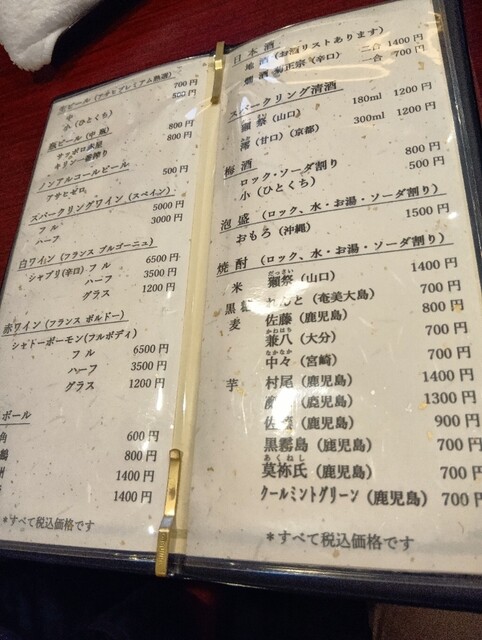 生ビール（アサヒプレミアム熟撰）
中 700円
小（ひとくち） 500円
瓶ビール（中瓶）
サッポロ赤星 800円
キリン一番搾り 800円
ノンアルコールビール
アサヒゼロ 500円
スパークリングワイン（スペイン）
フル 5000円
ハーフ 3000円
白ワイン（フランス ブルゴーニュ）
シャブリ(辛口) フル 6500円
ハーフ 3500円
グラス 1200円
赤ワイン（フランス ボルドー）
シャドーボーモン(フルボディ)
フル 6500円
ハーフ 3500円
グラス 1200円
ボール
角 600円
鶴 800円
州 1400円
1400円
＊すべて税込価格です
日本酒
地酒（お酒リストあります）
燗酒 菊正宗（辛口） 二合 1400円
一合 700円
スパークリング清酒
獺祭（山口） 180ml 1200円
澪（甘口）（京都） 300ml 1200円
梅酒
ロック・ソーダ割り 800円
小（ひとくち） 500円
泡盛（ロック、水・お湯・ソーダ割り）
おもろ（沖縄） 1500円
焼酎（ロック、水・お湯・ソーダ割り）
だっさい
米 獺祭（山口） 1400円
黒糖 れんと（奄美大島） 700円
麦 佐藤（鹿児島） 800円
かねはち
兼八（大分） 700円
なかなか
中々（宮崎） 700円
芋 村尾（鹿児島） 1400円
（鹿児島） 1300円
佐藤（鹿児島） 900円
黒霧島（鹿児島） 700円
あくねし
莫祢氏（鹿児島） 700円
クールミントグリーン（鹿児島） 700円
＊すべて税込価格です